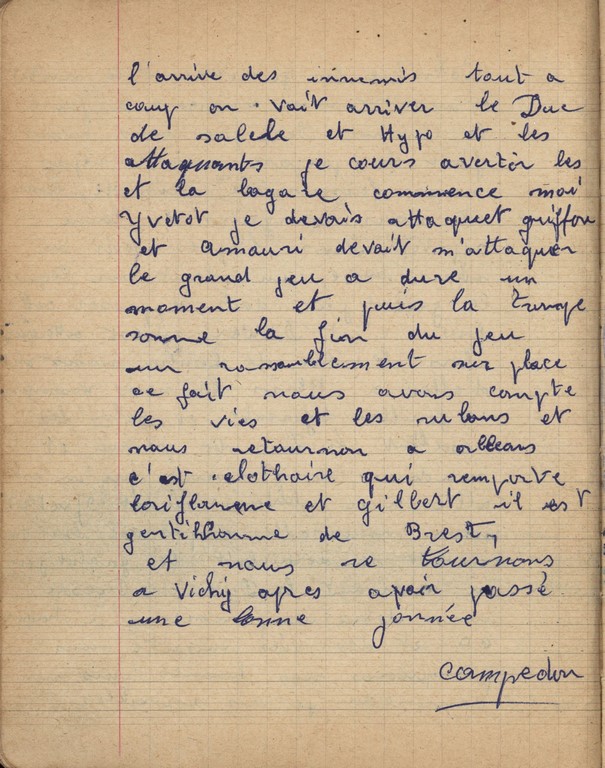 l'arrive des innemis tout a
coup on vait arriver le Duc
de salele et Hypo et les
attaquants je cours avertir les
et la bagare commence moi
Yvetot je devais attaquet griffon
et Amauri devait m'attaquer
le grand jeu a dure un
moment et puis la Trompe
sonne la fion du jeu
un rassamblement sur place
ce fait nous avons compte
les vies et les rubans et
nous retournon a orlleans
c'est clothaire qui remporte
loriflamme et gilbert il est
gentilhomme de Brest,
et nous re tournons
a Vichy apres avoir passé
une bonne jonnée
campedon